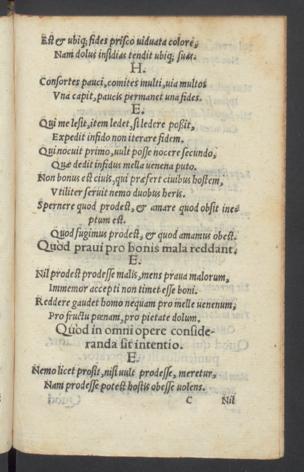 Est & ubiq; fides prisco viduata colore,
Nam dolus insidias tendit ubiq; suas.
H.
Consortes pauci, comites multi, via multos
Vna capit, paucis permanet una fides.
E.
Qui me lesit, item ledet, si ledere possit,
Expedit infido non iterare fidem.
Qui nocuit primo, uult posse nocere secundo,
Quæ dedit infidus mella uenena puto.
Non bonus est ciuis, qui præfert ciuibus hostem,
Vtiliter seruit nemo duobus heris.
Spernere quod prodest, & amare quod obsit ine⸗
ptum est.
Quod fugimus prodest, & quod amamus obest.
Quòd praui pro bonis mala reddant.
E.
Nil prodest prodesse malis, mens praua malorum,
Immemor accepti non timet esse boni.
Reddere gaudet homo nequam pro melle uenenum,
Pro fructu pœnam, pro pietate dolum.
Quòd in omni opere conside-
randa sit intentio.
E.
Nemo licet prosit, nisi uult prodesse, meretur,
Nam prodesse potest hostis obesse uolens.
C Nil